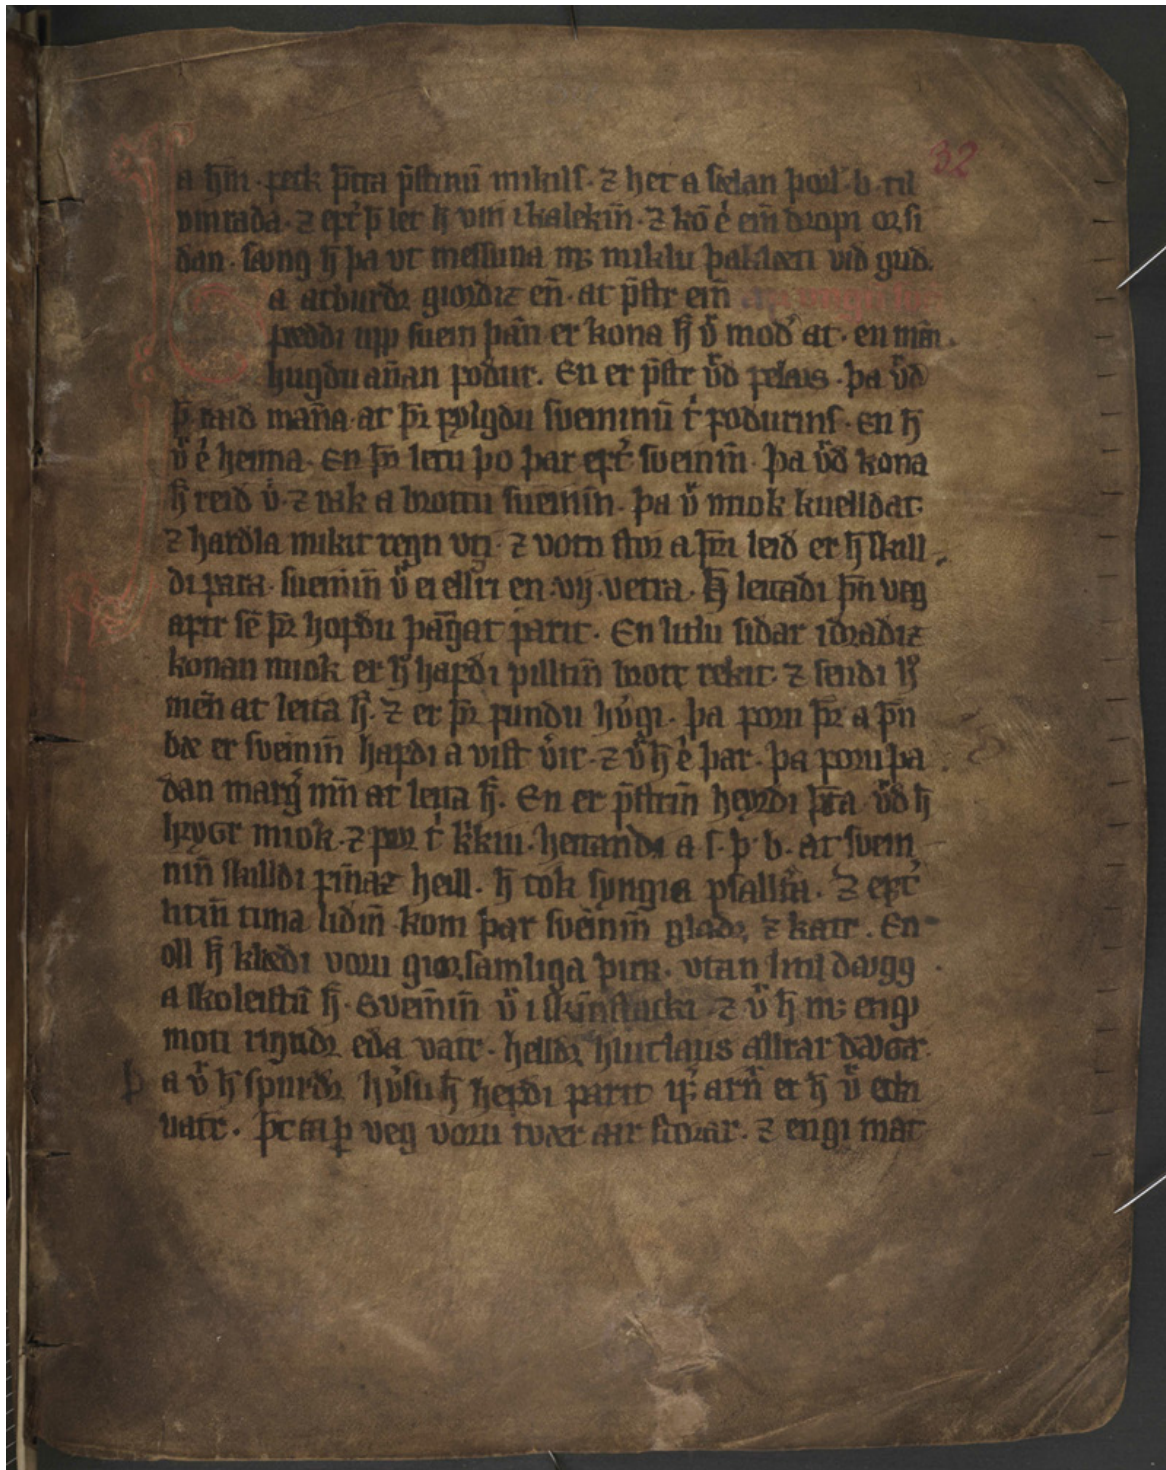 32
a h̄m. feck þ̄tta p̄stinū mikils. ⁊ het a sælan þorl. b. til
vmrada. ⁊ ept̉ þ̄ let h̄ vin i kalekin̄. ⁊ kō ė ein̄ dropi ór si
dan. saung h̄ þa vt messuna mꝫ miklu þaklæti vid gud.
a atburdꝛ giordiz en̄. at p̄str ein̄
fæddi upp suein þan̄ er kona h̄ v̄ mod̉ at. en men̄
hugdu an̄an fodur. En er p̄str v̄d felaus. þa v̄d
þ̄ rad man̄a. at þr̄ fylgdu sueininū t̉ fodurins. en h̄
v̄ ė heima. En þr̄ letu þo þar ept̉ sueinin̄. þa v̄d kona
h̄ reid v̉. ⁊ rak a brottu sueinin̄. þa v̄ miok kuelldat
⁊ hardla mikit regn vti. ⁊ votn stor a þr̄i leid er h̄ skill
di fara. sueinin̄ v̄ ei ellri en .vij. vetra. h̄ leitadi þn̄ veg
aptr sē þr̄ hofdu þan̄gat farit. En litlu sidar idradiz
konan miok er h̄ hafdi pilltin̄ brott rekit. ⁊ sendi
men̄ at leita h̄. ⁊ er þr̄ fundu hủgi. þa foru þr̄ a þn̄
bæ er sueinin̄ hafdi a vist v̉it. ⁊ v̄ h̄ ė þar. þa foru þa
dan marg̉ mn̄ at leita h̄. En er p̄strin̄ heyrdi þ̄ta v̄d h̄
hrygr miok. ⁊ for t̉ k̉kiu. heitandi a s. þ. b. at suein
nin̄ skilldi fin̄az heill. h̄ tok syngia psallt̄a. ⁊ ept̉
litin̄ tima lidin̄ kom þar sueinin̄ gladꝛ ⁊ katr. En
oll h̄ klædi voru giorsamliga þur. vtan litil daugg
a skoleistū h̄. Sueinin̄ v̄ i skin̄stacki. ⁊ v̄ h̄ mꝫ engu
moti rignd̉ eda vatr. helldꝛ hlutlaus allrar vatar
þ
a v̄ h̄ spurdꝛ hủsu h̄ hefdi farit yf̉ arn̄ er h̄ v̄ ecki
vatr. þt a þ̄ veg voru tvær ar storar. ⁊ engi mat